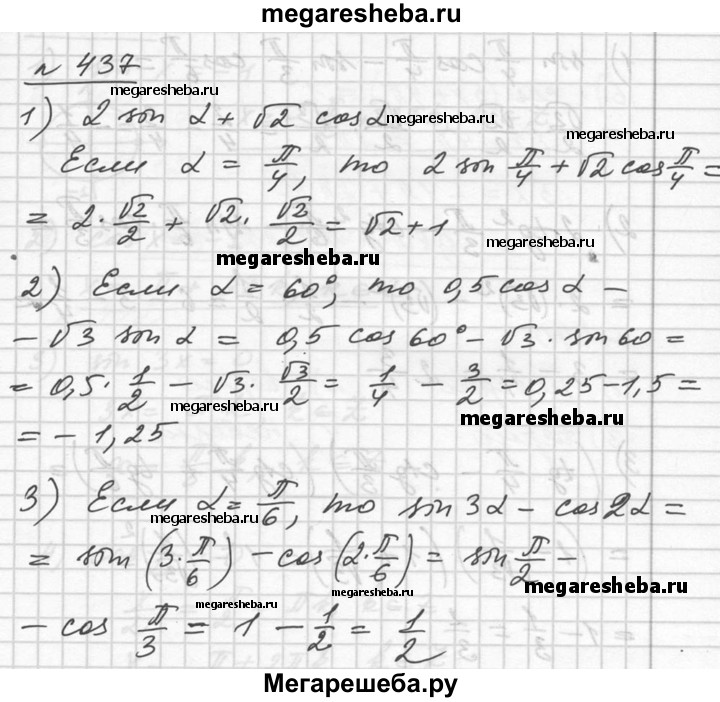 megaresheba.ru
№ 437
megaresheba.ru
1) 2 sin α + √2 cos α
megaresheba.ru
megaresheba.ru
Если α = π/4, то 2 sin π/4 + √2 cos π/4 =
= 2 · √2/2 + √2 · √2/2 = √2 + 1
megaresheba.ru
megaresheba.ru
2) Если α = 60°, то 0,5 cos α –
– √3 sin α = 0,5 cos 60° – √3 · sin 60 =
= 0,5 · 1/2 – √3 · √3/2 = 1/4 – 3/2 = 0,25 – 1,5 =
megaresheba.ru
megaresheba.ru
= – 1,25
3) Если α = π/6, то sin 3α – cos 2α =
megaresheba.ru
= sin (3 · π/6) – cos (2 · π/6) = sin π/2 –
megaresheba.ru
megaresheba.ru
megaresheba.ru
– cos π/3 = 1 – 1/2 = 1/2
Мегарешеба.ру